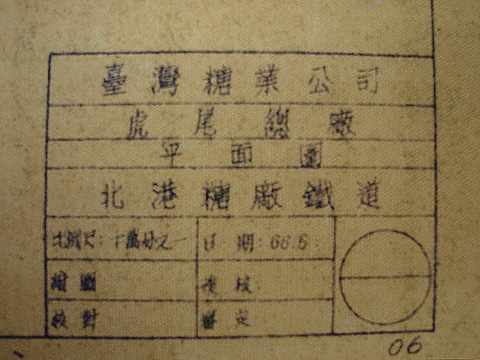 臺灣糖業公司
虎尾總廠
平面圖
北港糖廠鐵道
比例尺：十萬分之一 日期：66.6
繪圖 複核
校對 審定
06